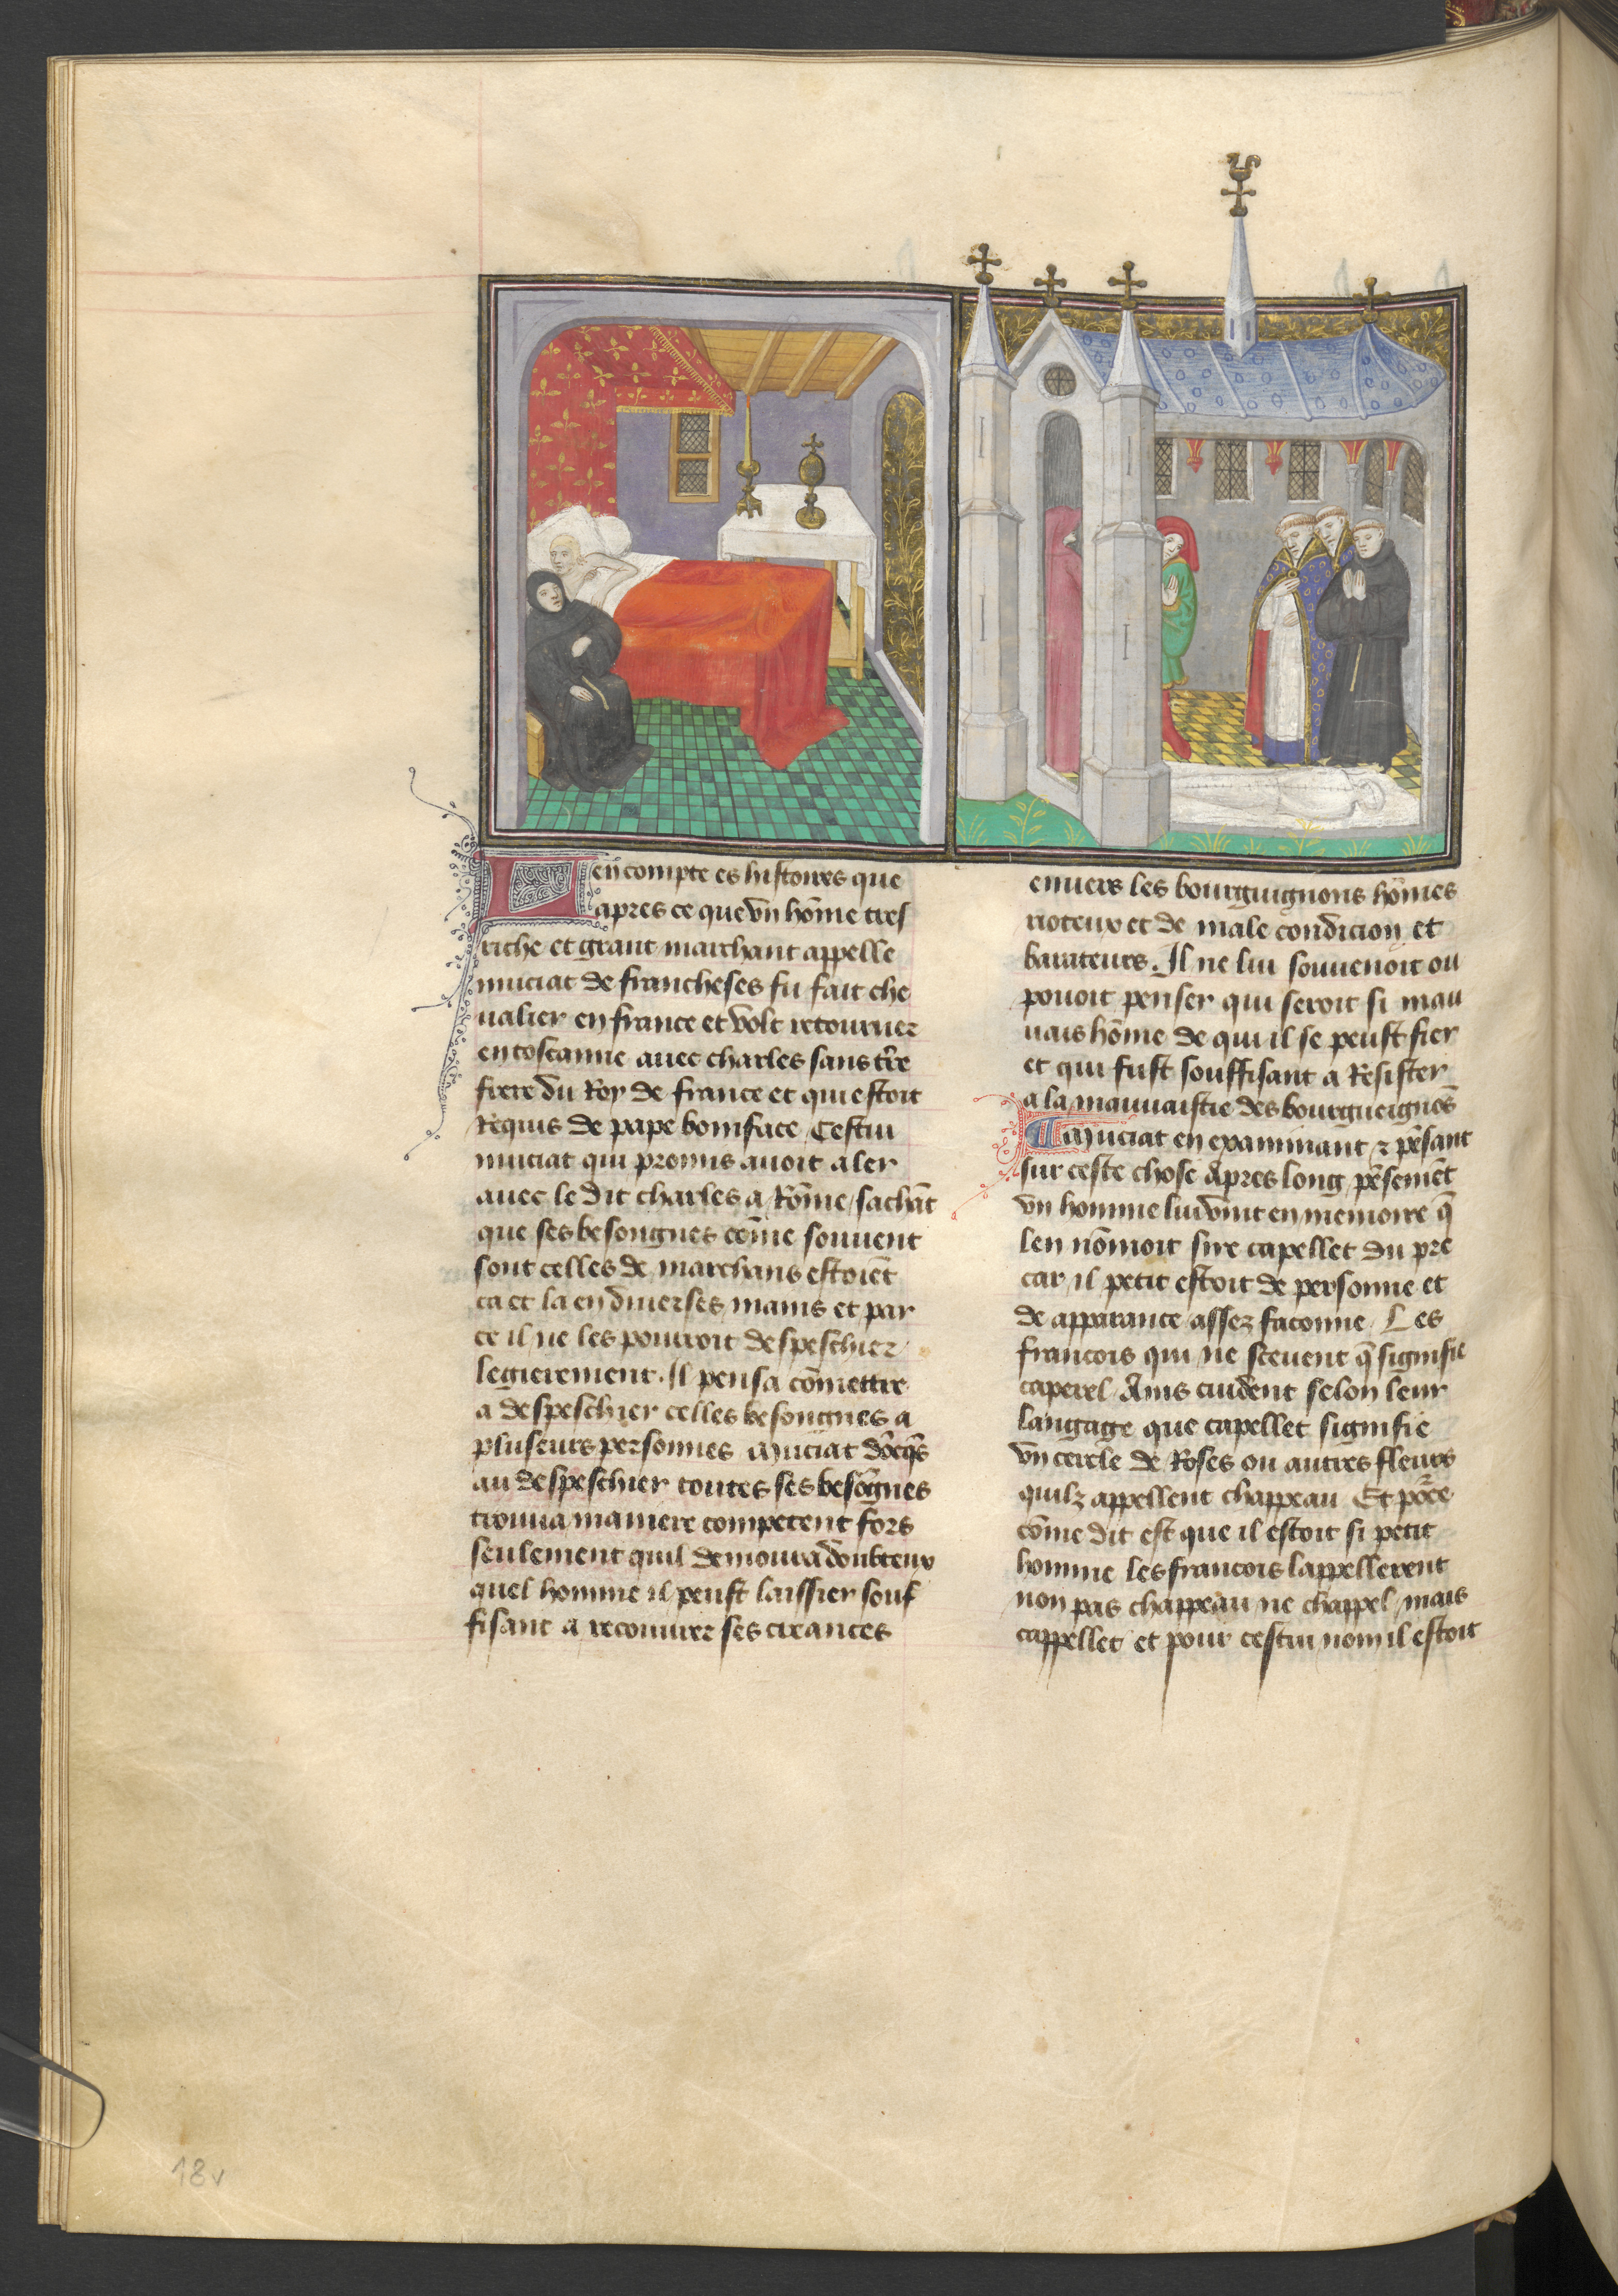 Len compte es histoires que
apres ce que vn hōme tres
riche et grant marchant appelle
muciat de francheses fu fait che
ualier en france et volt retourner
en toscanne auec charles sans tr̄re
frere du Roy de france et qui estoit
Requis de pape boniface Cestui
muciat qui promis auoit aler
auec le dit charles a Rōme sachāt
que ses besongnes cōme souuent
sont celles de marchans estoiēt
ca et la en diuerses mains et par
ce il ne les pourroit despeschier
legierement. Il pensa cōmettre
a despeschier celles besongnes a
pluseurs personnes Muciat dōcq̄s
au despeschier toutes ses besōgnes
trouua maniere competent fors
seulement quil demoura doubteux
quel homme il peust laissier souf
fisant a recouurer ses creances
enuers les bourguignons hōmes
rioteux et de male condicion et
barateurs. Il ne lui souuenoit ou
pouoit penser qui seroit si mau
uais hōme de qui il se peust fier
et qui fust souffisant a Resister
a la mauuaistie des bourgueignōs
Muciat en examinant ⁊ pēsant
sur ceste chose Apres long pēsemēt
vn homme lui vint en memoire q̄
len nōmoit sire capellet du pre
car il petit estoit de personne et
de apparance assez faconne Les
francois qui ne sceuent q̄ signifie
caperel Ains cuident selon leur
langage que capellet signifie
vn cercle de Roses ou autres fleurs
quilz appellent chappeau Et pōce
cōme dit est que il estoit si petit
homme les francois lappellerent
non pas chappeau ne chappel mais
cappellet et pour cestui nom il estoit
18v